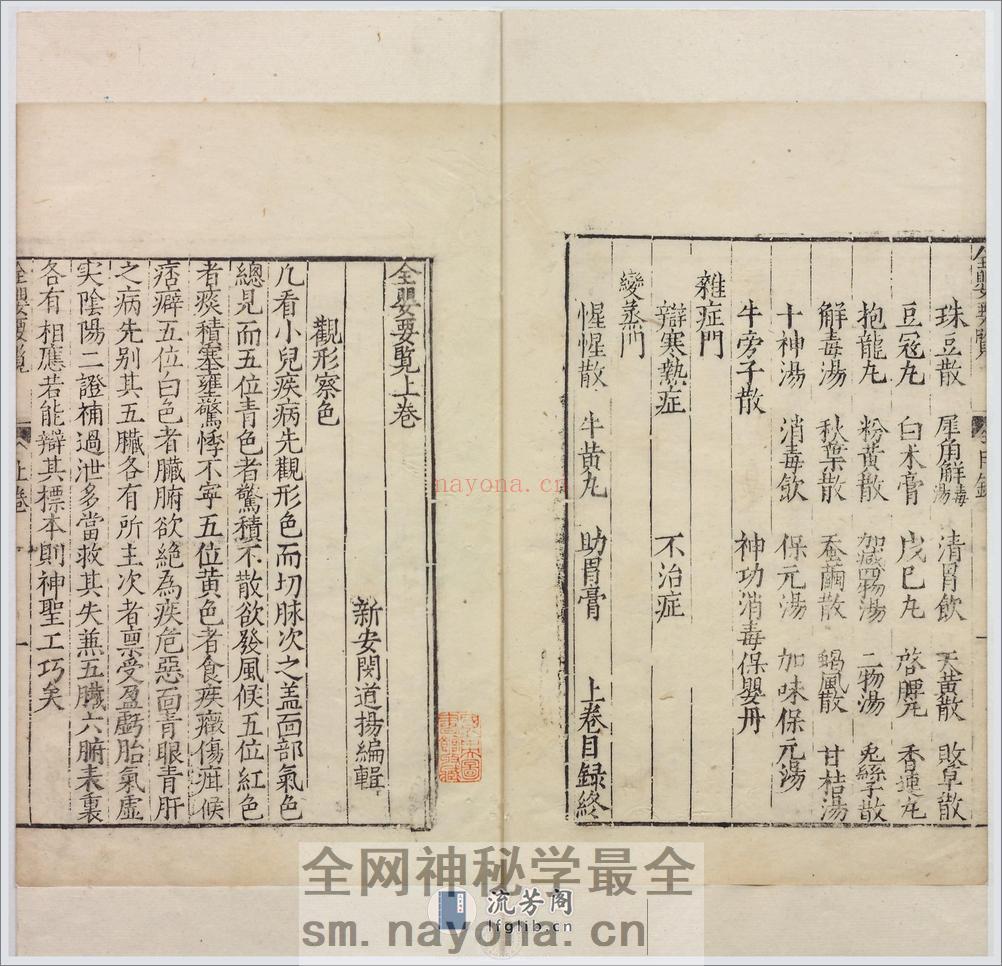 全嬰要覽
全目錄
一
珠豆散　犀角解毒湯　清胃飲　天黃散　敗草散
豆冦丸　白术膏　戊巳丸　啓脾丸　香連丸
抱龍丸　粉黃散　加減四物湯　二物湯　兎絲子散
解毒湯　秋葉散　蚕繭散　蝎風散　甘桔湯
十神湯　消毒飲　保元湯　加味保元湯
牛旁子散　神功消毒保嬰丹
雜症門
辯寒熱症　不治症
變蒸門
惺惺散　牛黃丸　助胃膏　上卷目録終
全嬰要覧上卷
新安閔道揚編輯
觀形察色
凡看小兒疾病先觀形色而切脉次之盖靣部氣色
總見而五位青色者驚積不散欲發風候五位紅色
者痰積壅驚悸不寧五位黃色者食疾癥傷疳候
痞癖五位白色者臟腑欲絶為疾危惡靣青眼青肝
之病先別其五臟各有所主次者禀受盈虧胎氣虛
实陰陽二證補過泄多當救其失兼五臟六腑表裏
各有相應若能辯其標本則神聖工巧矣
全嬰要覧
上卷
一
nayona.cn
全网神秘学最全
流芳阁
lfglib.cn
sm.nayona.cn